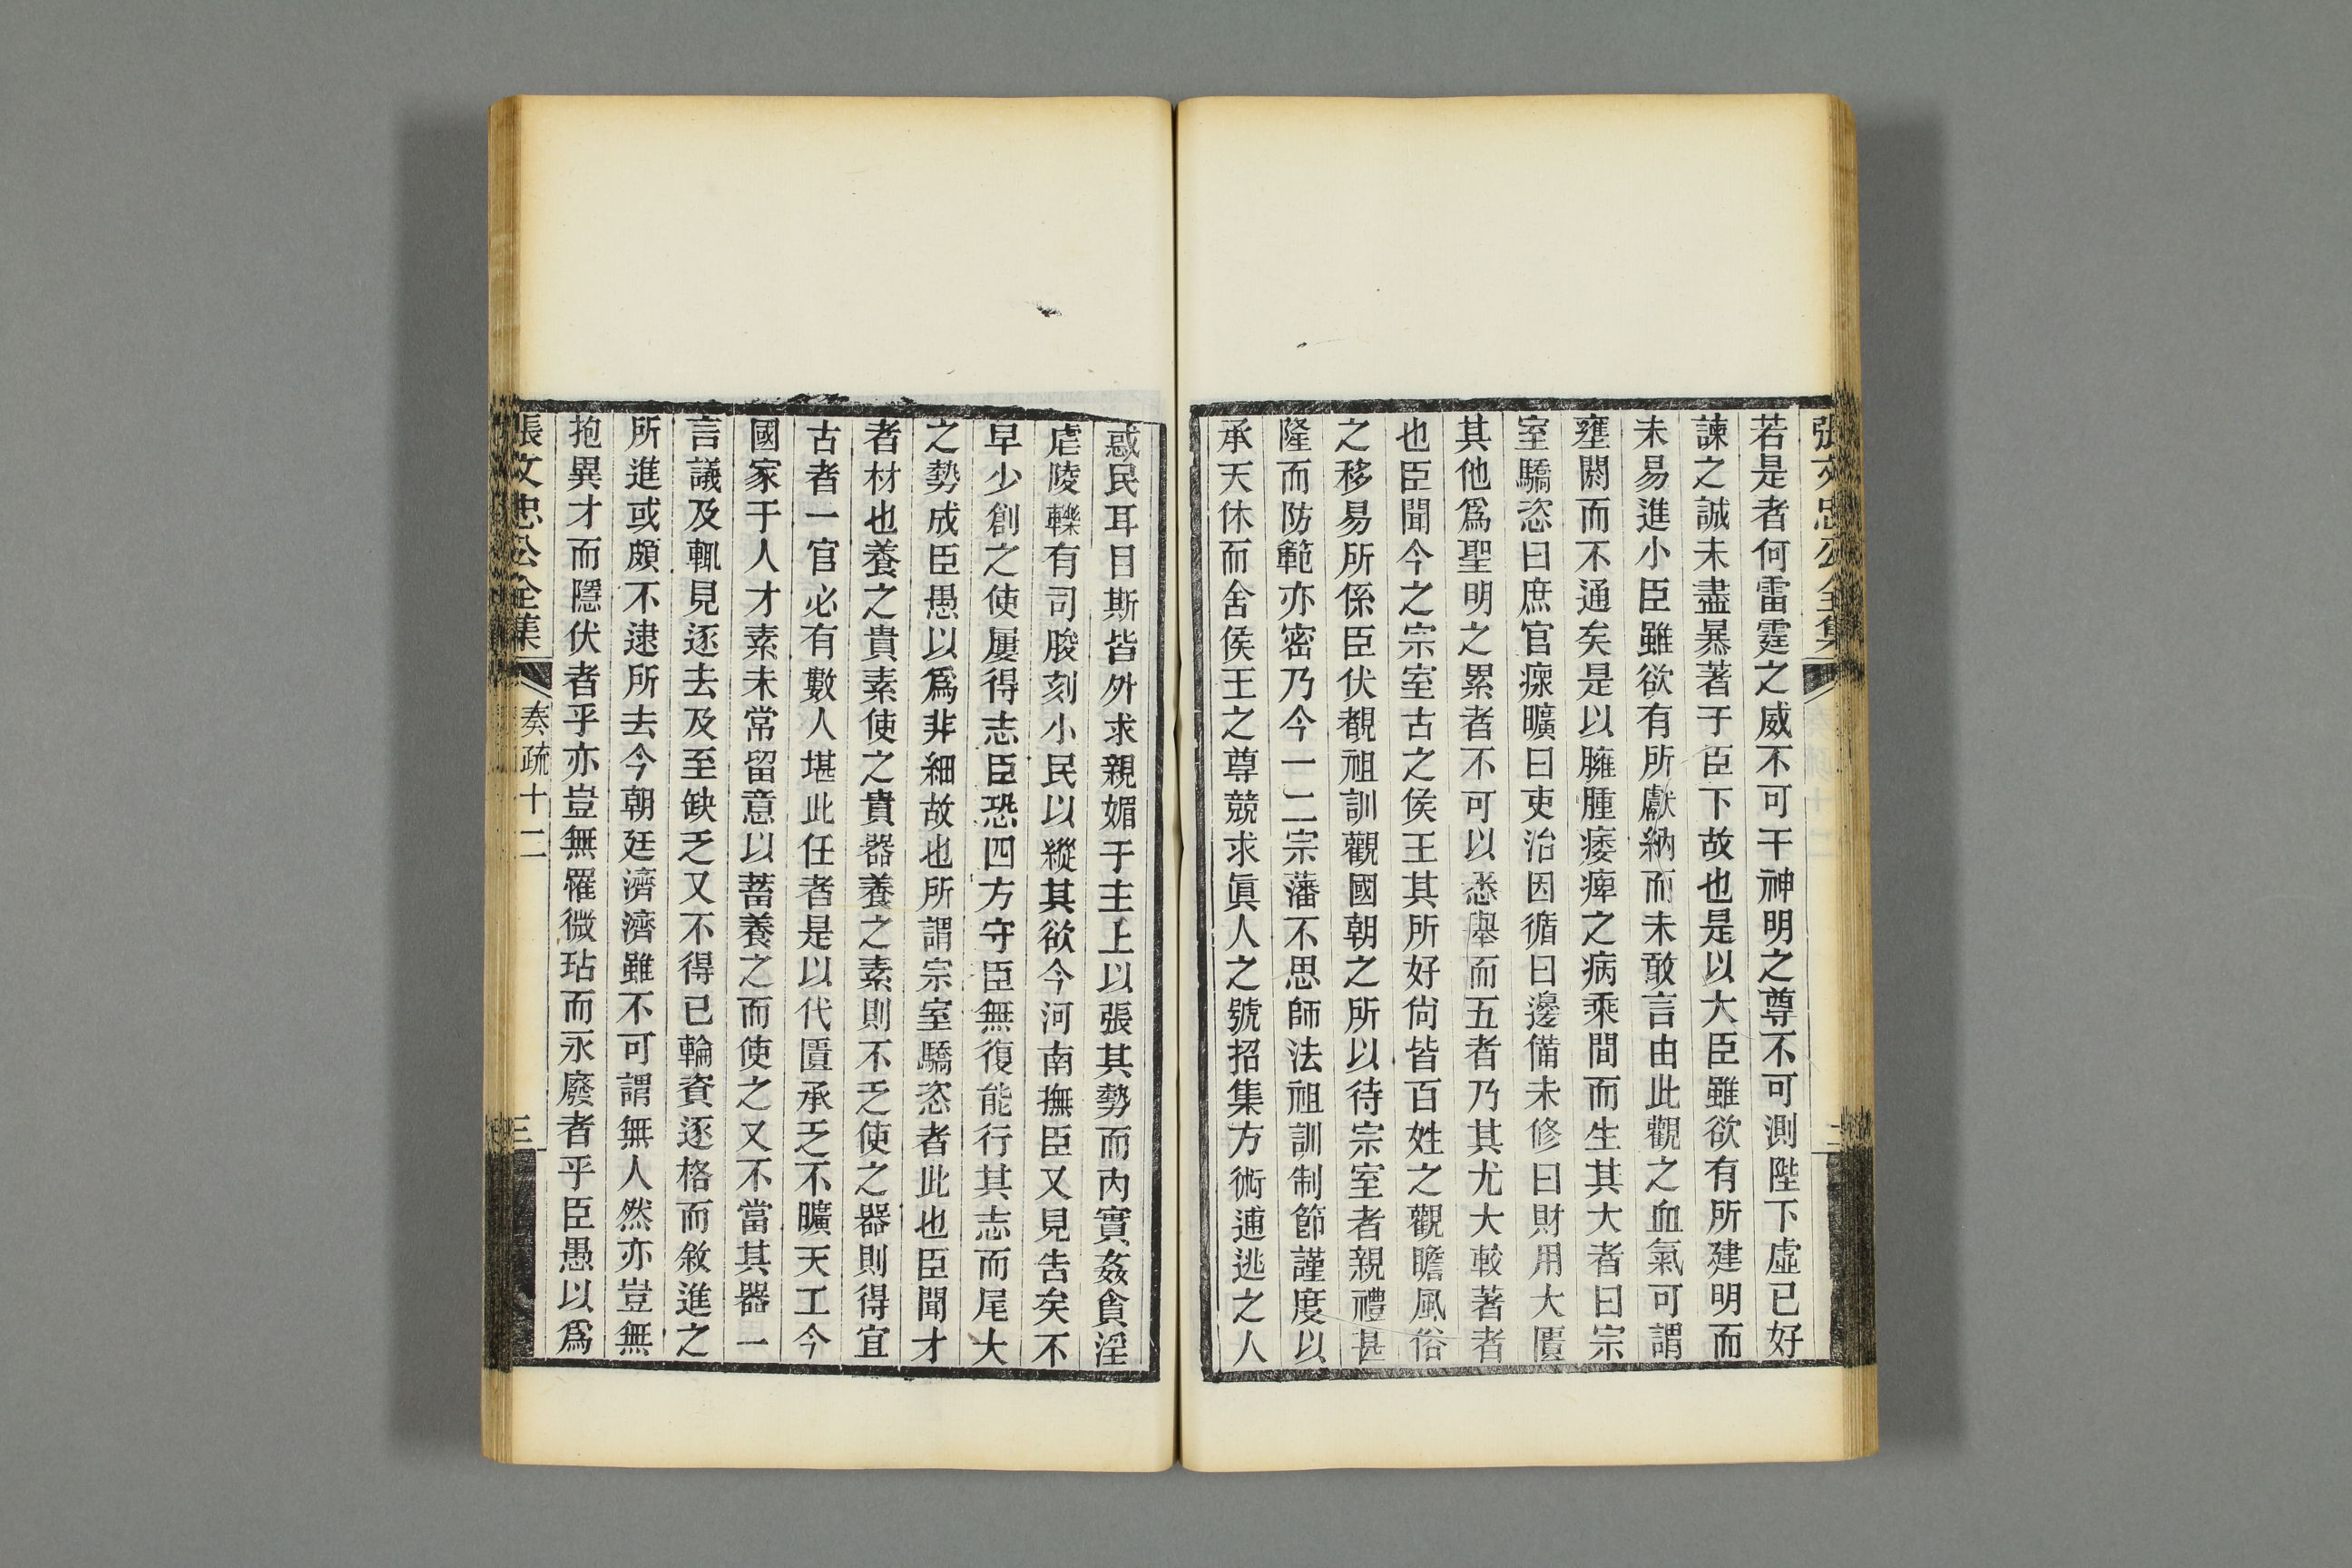 張文忠公全集
二
若是者何雷霆之威不可干神明之尊不可測陛下虛已好
諫之誠未盡暴著于臣下故也是以大臣雖欲有所建明而
未易進小臣雖欲有所獻納而未敢言由此觀之血氣可謂
壅閼而不通矣是以臃腫痿痺之病乘間而生其大者曰宗
室驕恣曰庶官瘝曠曰吏治因循曰邊備未修曰財用大匱
其他爲聖明之累者不可以悉舉而五者乃其尤大較著者
也臣聞今之宗室古之侯王其所好尙皆百姓之觀瞻風俗
之移易所係臣伏覩祖訓觀國朝之所以待宗室者親禮甚
隆而防範亦密乃今一二宗藩不思師法祖訓制節謹度以
承天休而舍侯王之尊競求眞人之號招集方術逋逃之人
惑民耳目斯皆外求親媚于主上以張其勢而內實姦貪淫
虐陵轢有司朘刻小民以縱其欲今河南撫臣又見告矣不
早少創之使屢得志臣恐四方守臣無復能行其志而尾大
之勢成臣愚以爲非細故也所謂宗室驕恣者此也臣聞才
者材也養之貴素使之貴器養之素則不乏使之器則得宜
古者一官必有數人堪此任者是以代匱承乏不曠天工今
國家于人才素未常留意以蓄養之而使之又不當其器一
言議及輒見逐去及至缺乏又不得已輪資逐格而敘進之
所進或頗不逮所去今朝廷濟濟雖不可謂無人然亦豈無
抱異才而隱伏者乎亦豈無罹微玷而永廢者乎臣愚以爲
張文忠公全集
奏疏十二
三